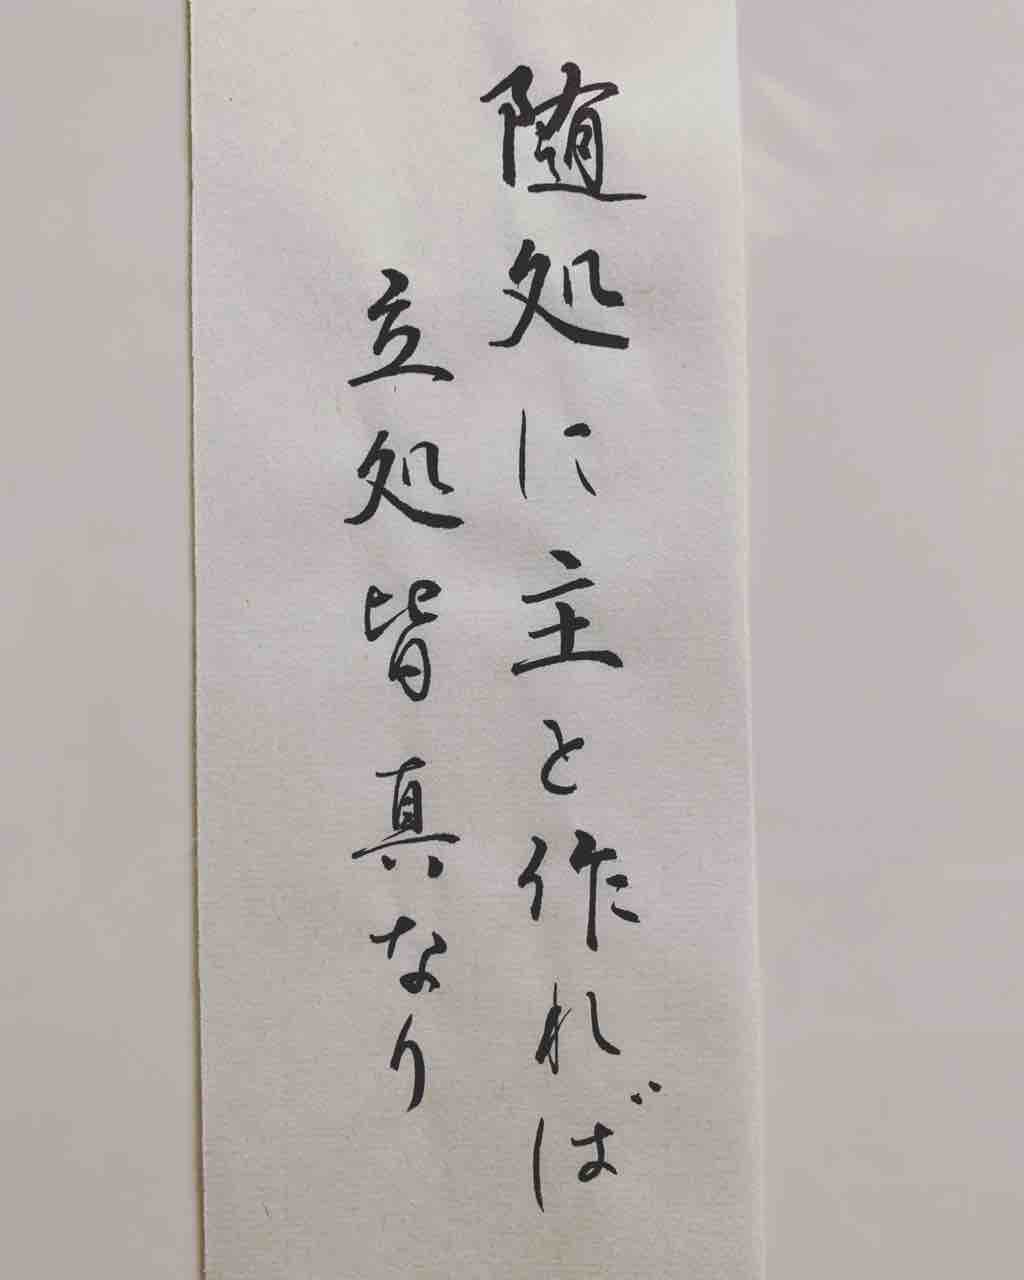 随処に主と作れば
立処皆真なり